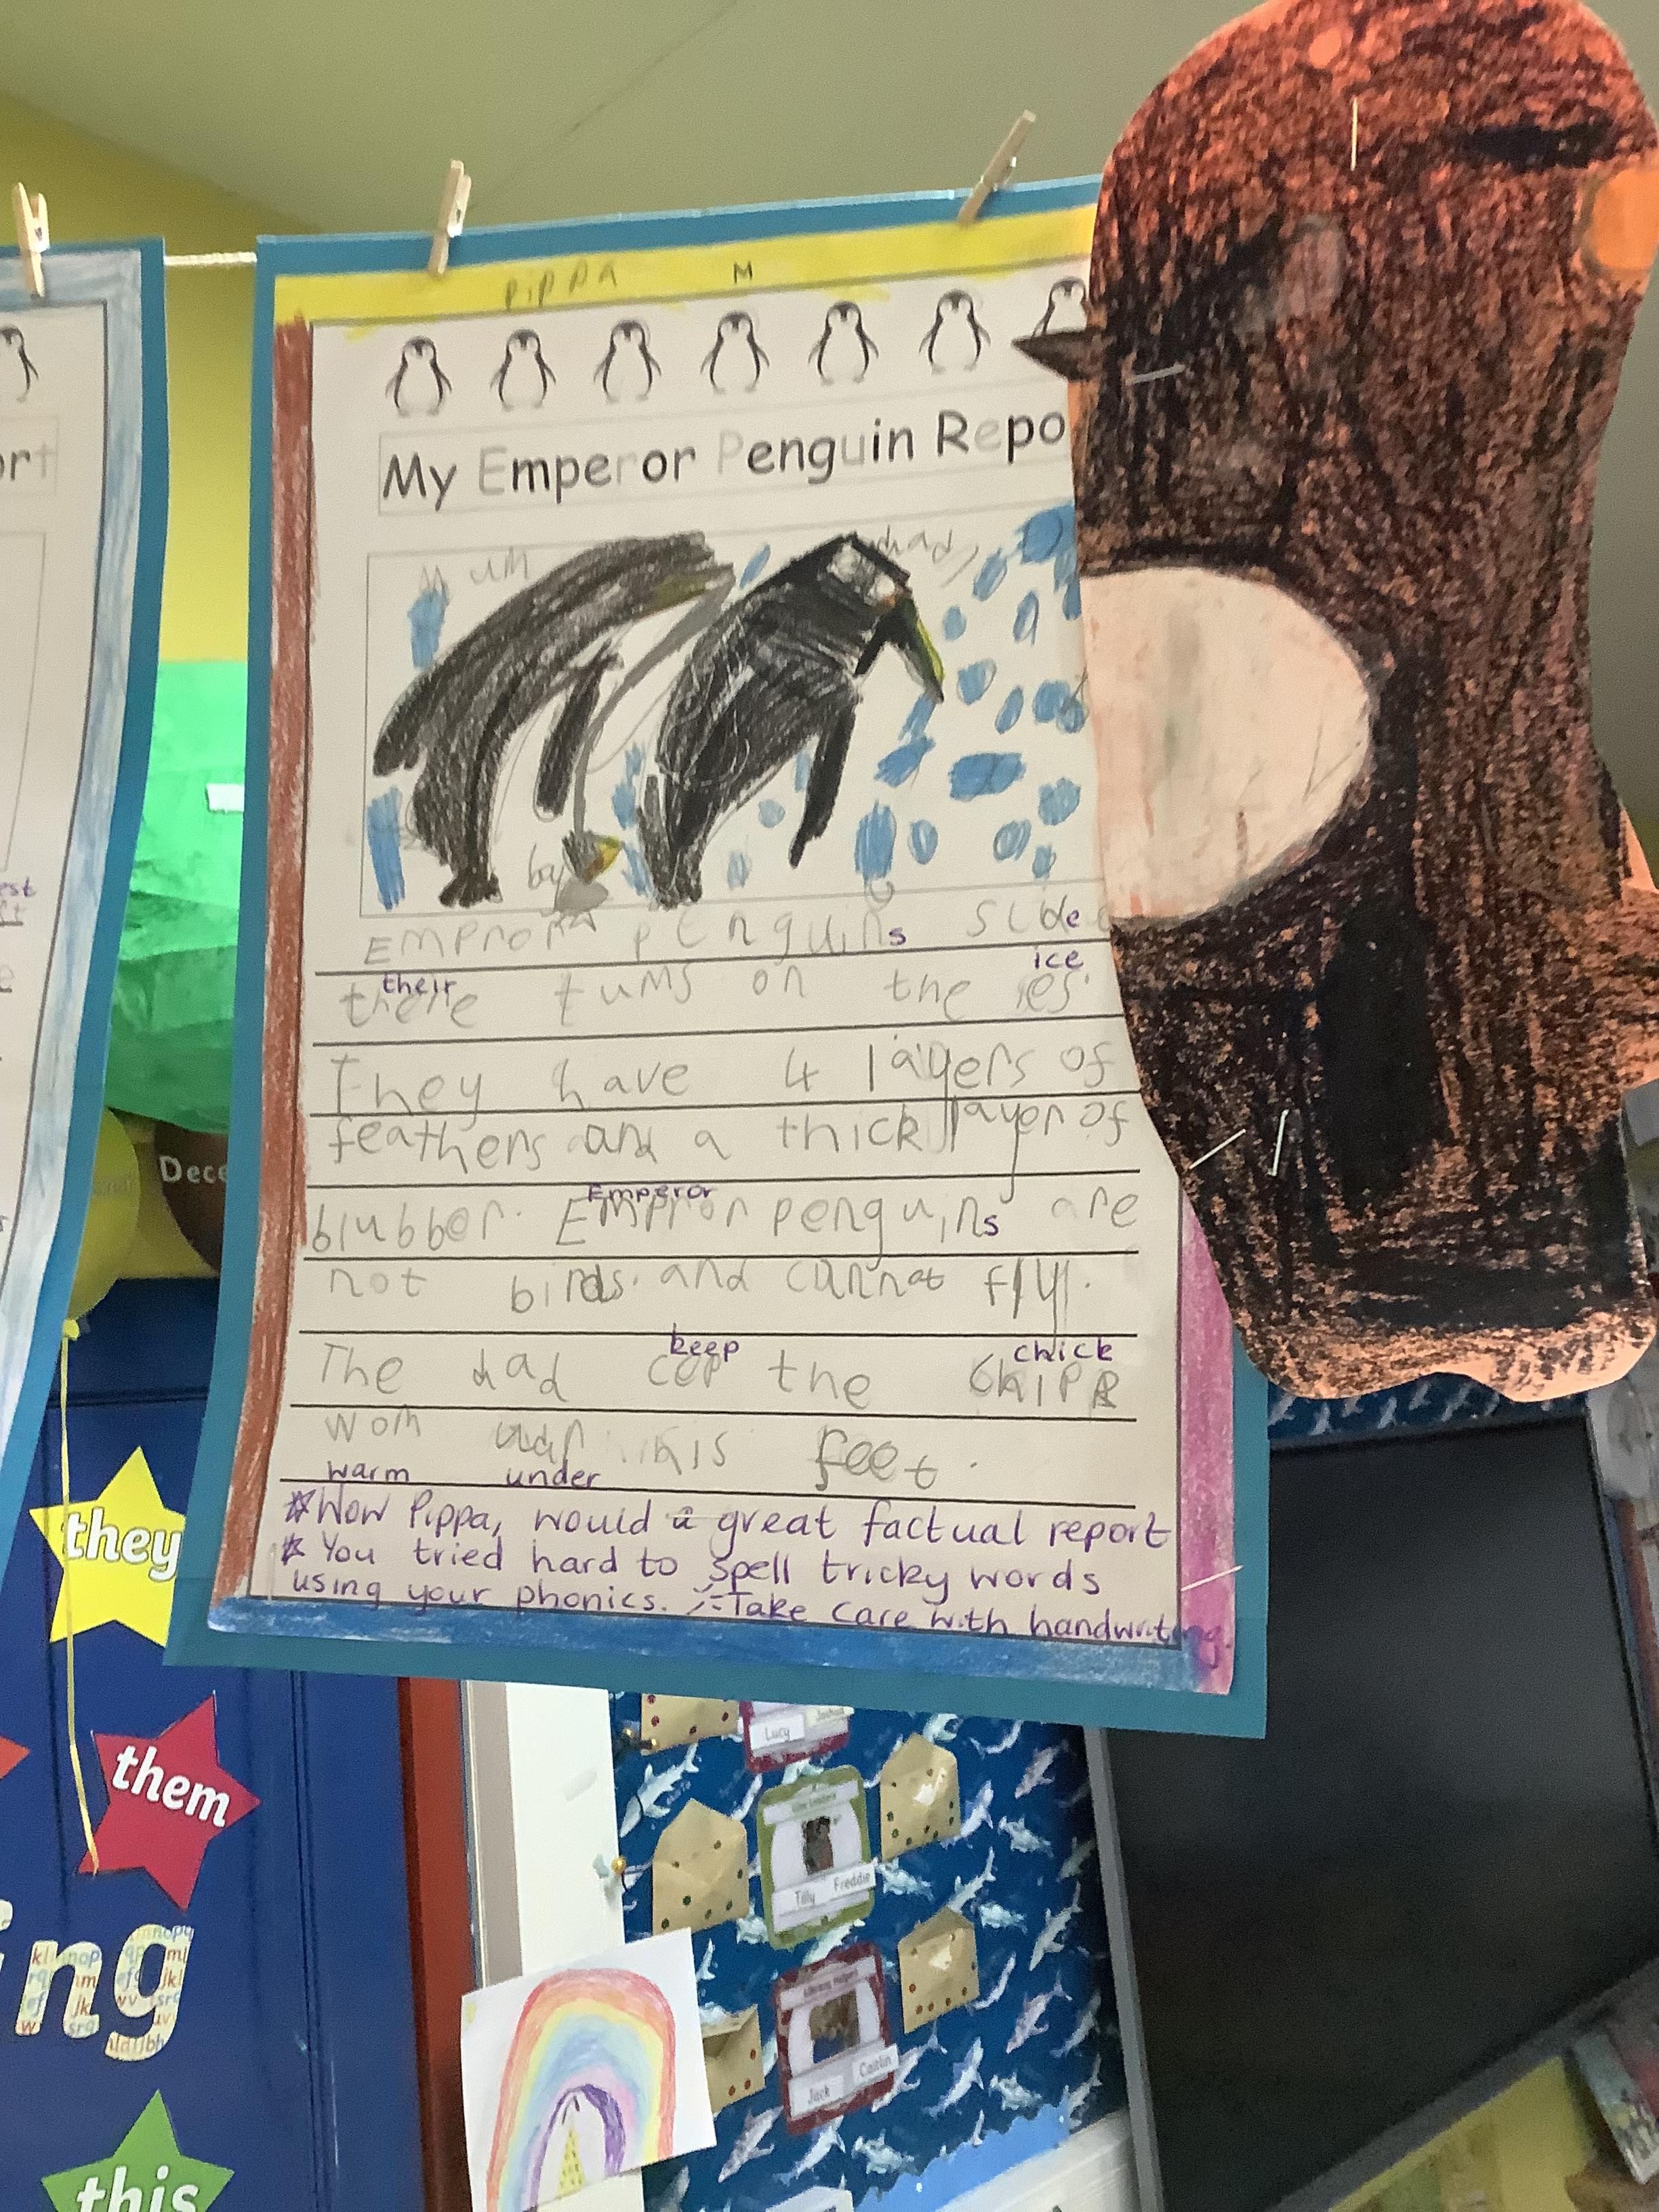 PiPPA M
ort
My Emperor Penguin Repo
Mum
dad
bay
est
ft
EMPror penguins slide
their ice
there tums on the ies.
They have 4 layers of
feathers and a thick layer of
Emperor
blubber. Empror penguins are
not birds. and cannot fly.
keep chick
The dad cep the chip
wom udr his feet.
warm under
*Wow Pippa, would a great factual report
* You tried hard to spell tricky words
using your phonics. Take care with handwriting.
Dece
they
them
ing
this
Lucy Joshua
Tilly Freddie
Jack Caitlin